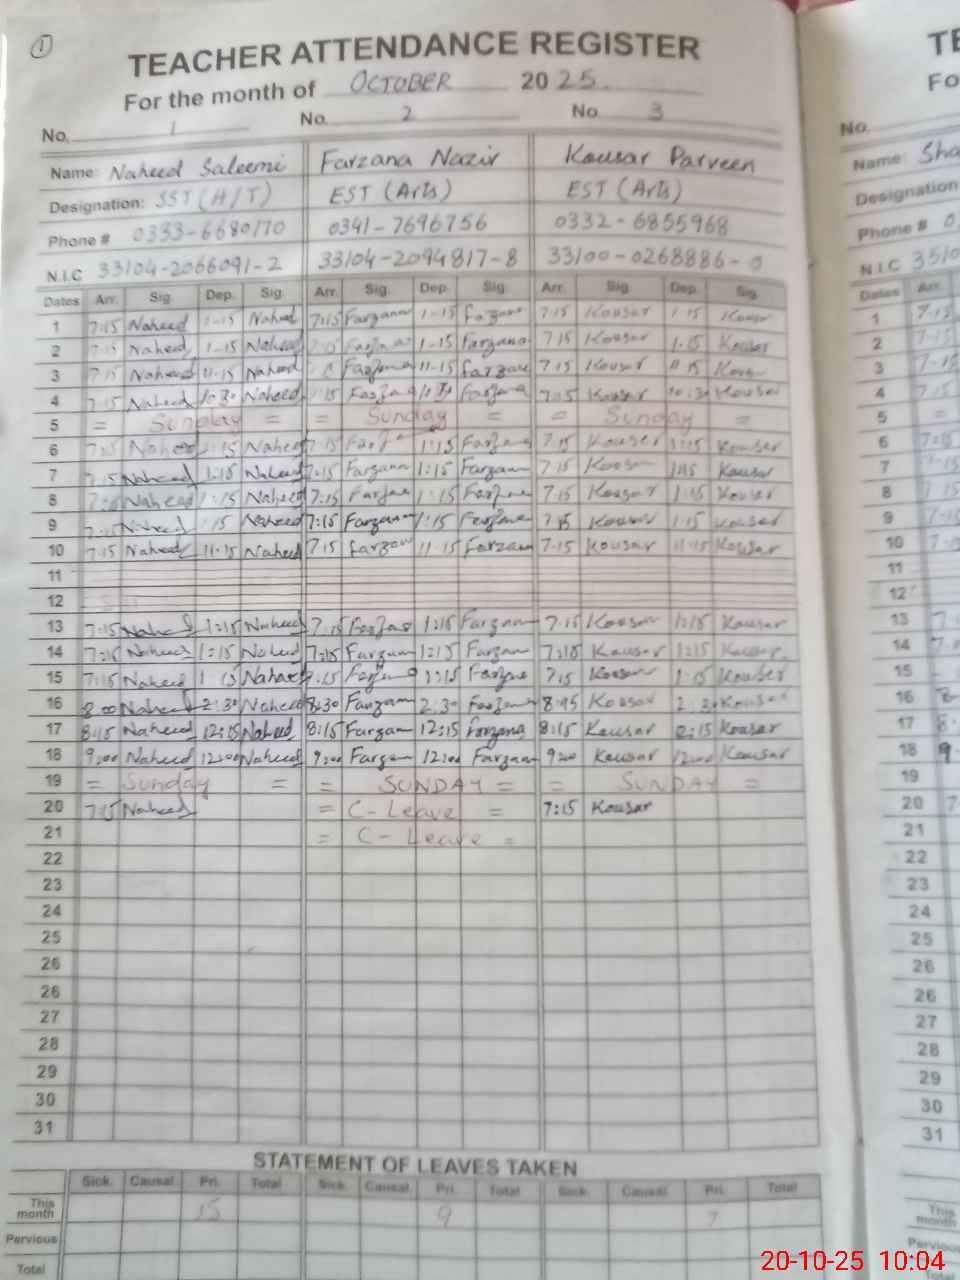 1
TEACHER ATTENDANCE REGISTER
For the month of OCTOBER 2025.
No. 1 No. 2 No. 3
Name: Naheed Saleemi Farzana Nazir Kousar Parveen
Designation: SST (H/T) EST (Arts) EST (Arts)
Phone # 0333-6680170 0341-7696756 0332-6855968
N.I.C 33104-2066091-2 33104-2094817-8 33100-0268886-0
Dates Arr. Sig. Dep. Sig. Arr. Sig. Dep. Sig. Arr. Sig. Dep. Sig.
1 7:15 Naheed 1-15 Naheed 7:15 Farzana 1-15 Farzana 7:15 Kousar 1:15 Kousar
2 7:15 Naheed 1-15 Naheed 1-15 Farzana 7:15 Kousar 1.15 Kousar
3 7:15 Naheed 11.15 Naheed Farzana 11-15 Farzana 7:15 Kousar 11.15
4 7:15 Naheed 10:30 Naheed 7:15 Farzana Farzana 7:15 Kousar 10:30 Kousar
5 = Sunday = = Sunday = = Sunday =
6 7:15 Naheed 1:15 Naheed 7:15 1:15 Farzana 7:15 Kousar 1:15 Kousar
7 7:15 Naheed 1:15 Naheed 7:15 Farzana 1:15 Farzana 7:15 Kousar 1:15 Kousar
8 Naheed 1:15 Naheed 7:15 Farzana 1:15 Farzana 7:15 Kousar 1:15 Kousar
9 7:15 Naheed 1:15 Naheed 7:15 Farzana 1:15 Farzana 7:15 Kousar 1:15 Kousar
10 7:15 Naheed 11.15 Naheed 7:15 Farzana 11.15 Farzana 7.15 Kousar 11.15 Kousar
11
12
13 7:15 Naheed 1:15 Naheed 7:15 Farzana 1:15 Farzana 7:15 Kousar 1:15 Kousar
14 7:15 Naheed 1:15 Naheed 7:15 Farzana 1:15 Farzana 7:15 Kousar 1:15 Kousar
15 7:15 Naheed 1:15 Naheed 7:15 1:15 Farzana 7:15 Kousar 1:15 Kouser
16 8:00 Naheed 2:30 Naheed 8:30 Farzana 2:30 Farzana 8:45 Kousar 2:30 Kousar
17 8:15 Naheed 12:15 Naheed 8:15 Farzana 12:15 Farzana 8:15 Kousar Kousar
18 9:00 Naheed 12:00 Naheed 9:00 Farzana 12:00 Farzana 9:00 Kousar 12:00 Kousar
19 = Sunday = = SUNDAY = = SUNDAY =
20 7:15 Naheed = C-Leave = 7:15 Kousar
21 = C-Leave =
22
23
24
25
26
26
27
28
29
30
31
STATEMENT OF LEAVES TAKEN
Sick. Causal Pri. Total Sick. Causal Pri. Total Sick. Causal Pri. Total
This month 15 9 7
Pervious
Total
TE
Fo
No.
Name: Sha
Designation
Phone # 0
N.I.C 350
Dates Arr.
1 7:15
2
3
4
5 =
6 7:15
7
8
9
10
11
12
13 7
14
15
16 8
17 8
18 9
19
20 7
21
22
23
24
25
26
26
27
28
29
30
31
This month
Pervious
Total
20-10-25 10:04